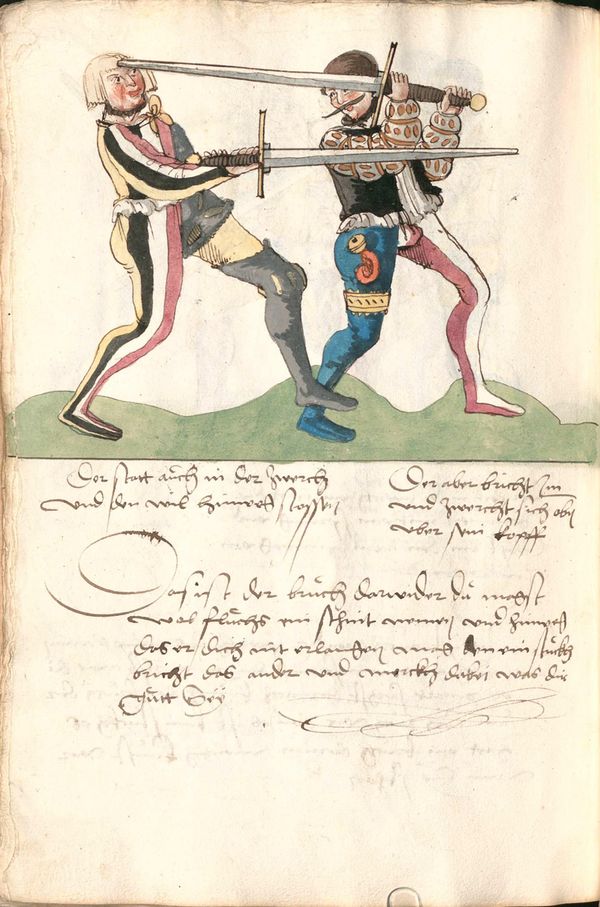 Der statt auch in der zwerch
unnd den wil hinweg stossen
Der aber bricht Im
unnd zwercht sich obn
uber sein kopff
Das ist der bruch darwider du magst
wol fluchs ein schrit nemen unnd hinweg
das er dich nit erlangen mag den ein stuckh
bricht das ander unnd merckh dabei was dir
gutt Sey